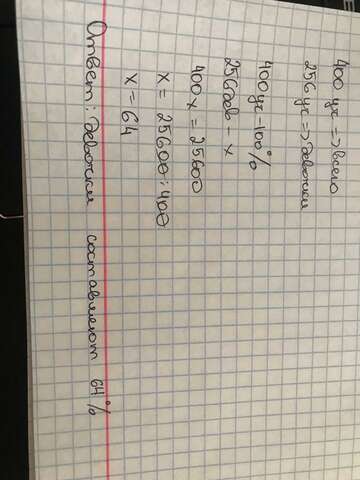 400 уч => всего
256 уч => девочки
400 уч - 100%
256 дев - x
400x = 25600
x = 25600 : 400
x = 64
Ответ: девочки составляют 64%